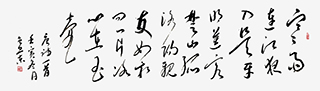 寒雨
連江夜
入吳平
明送客
楚山孤
洛陽親
友如相
問一片冰
心在玉
壺
唐詩一首
壬寅冬月